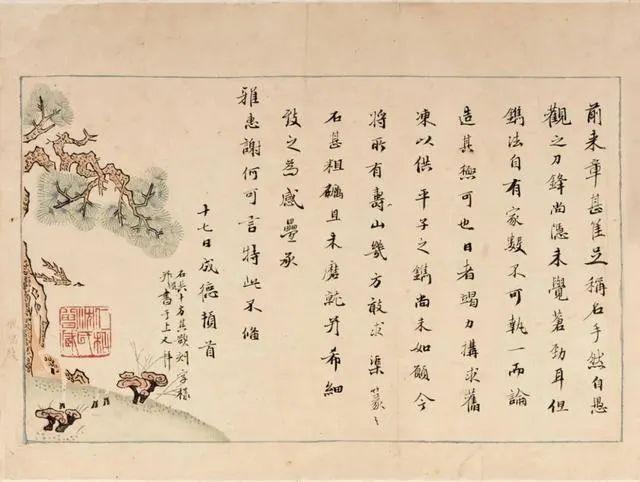 前来章甚佳足稱名手然自愚
觀之刀鋒尚隱未覺蒼勁耳但
鐫法自有家数不可執一而論
造其極可也日者竭力搆求舊
凍以供平子之鐫尚未如願今
將所有壽山幾方敢求渠篆之
石甚粗礪且未磨就并希細
致之為感疊承
雅惠謝何可言特此不備
十七日成德頓首
石共十方其欲刻字樣
書于上又拜